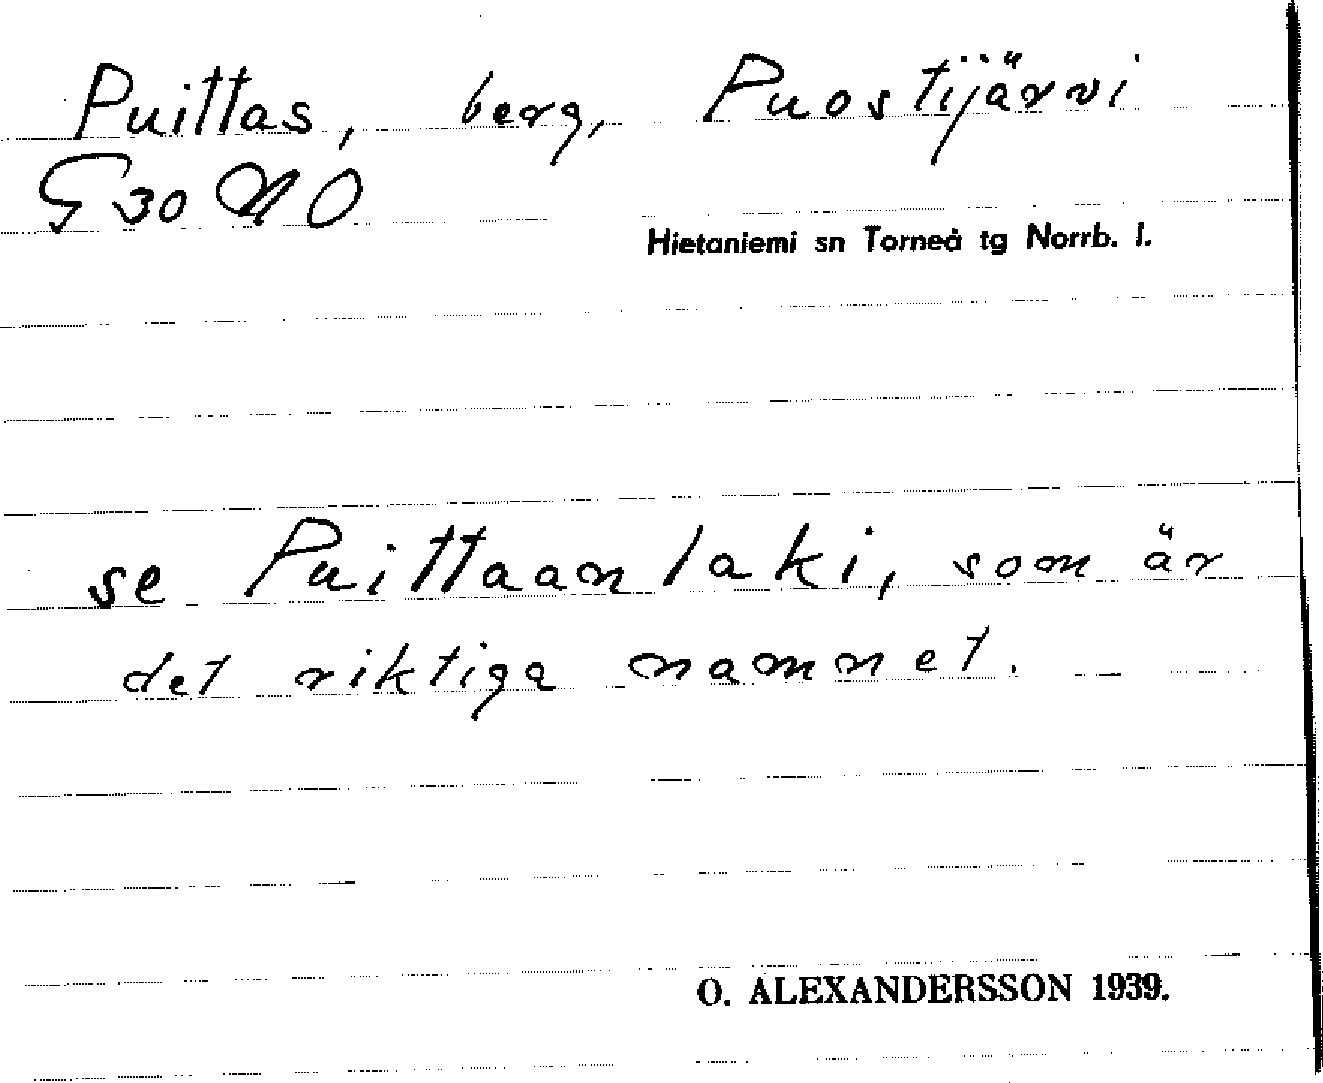 Puittas, berg, Puostijärvi
G 30 NO
Hietaniemi sn Torneå tg Norrb. l.
se Puittaanlaki, som är
det riktiga namnet.
O. ALEXANDERSSON 1939.